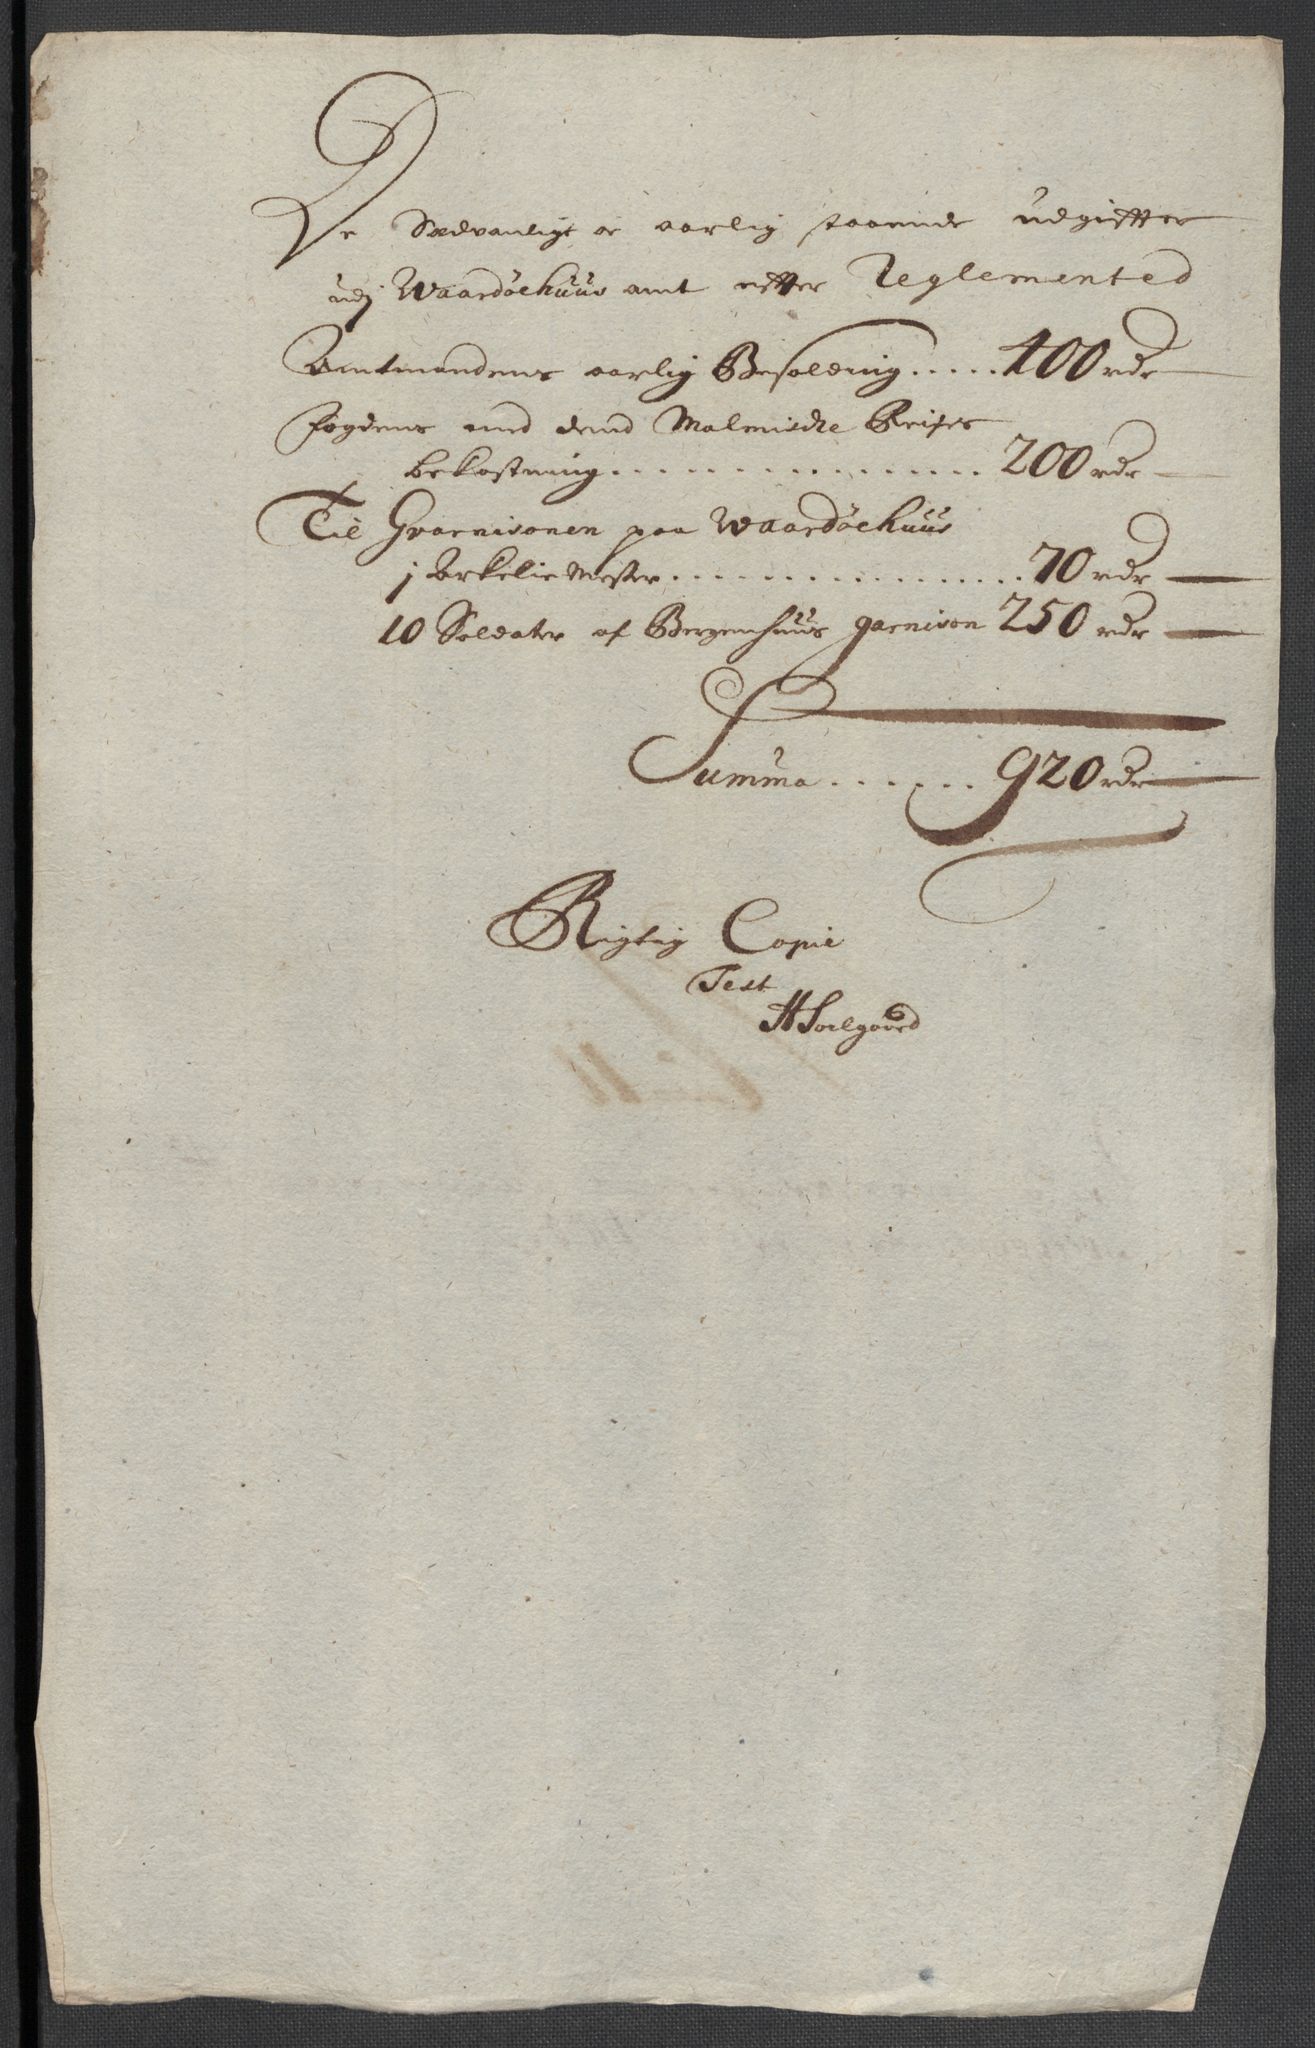 De Sædvanligt oc aarlig staaende udgiffter
udj Waardøehuus amt efter Reglemented
Amtmandens aarlig Besolding ..... 400 rdr
Fogdens med dend Malmiske Reises
bekostning ................ 200 rdr
Til Gvarnisonen paa Waardøehuus
1 Arkelie Mester ................. 70 rdr
10 Soldater af Bergenhuus garnison 250 rdr
Summa ...... 920 rdr
Rigtig Copie
Test
H Soelgaard